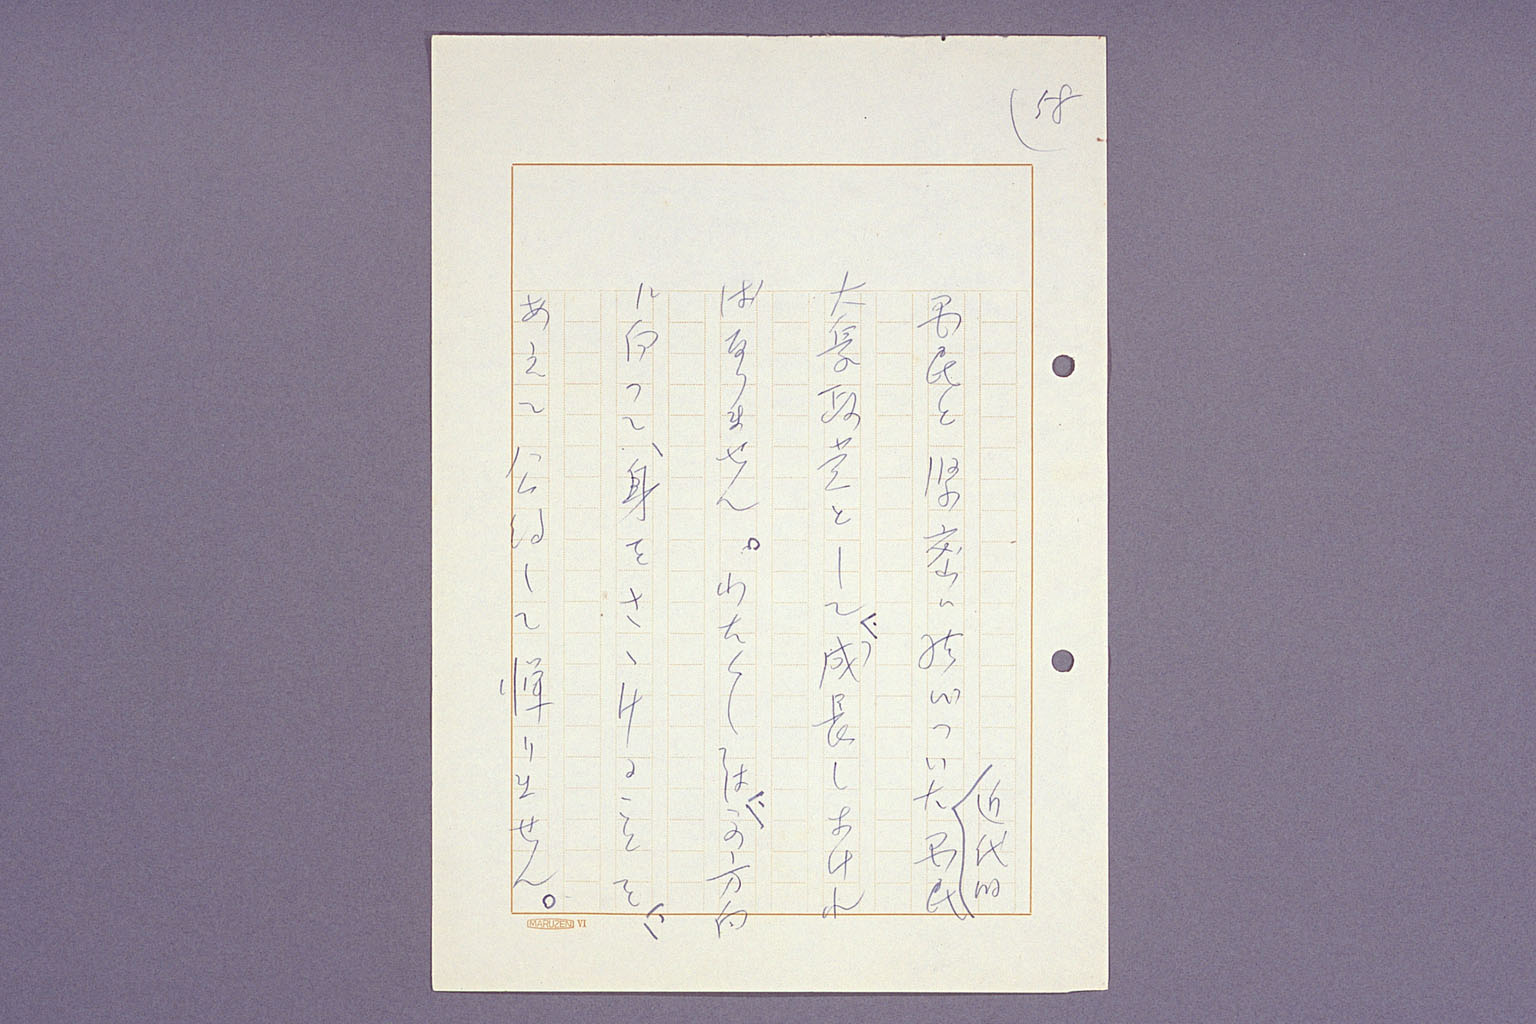 58
国民と堅密に結びついた近代的国民
大衆政党として成長しなけれ
ばなりません。わたくしはこの方向
に向って、身をさゝげることを
あえて公約して憚りません。
MARUZEN VI